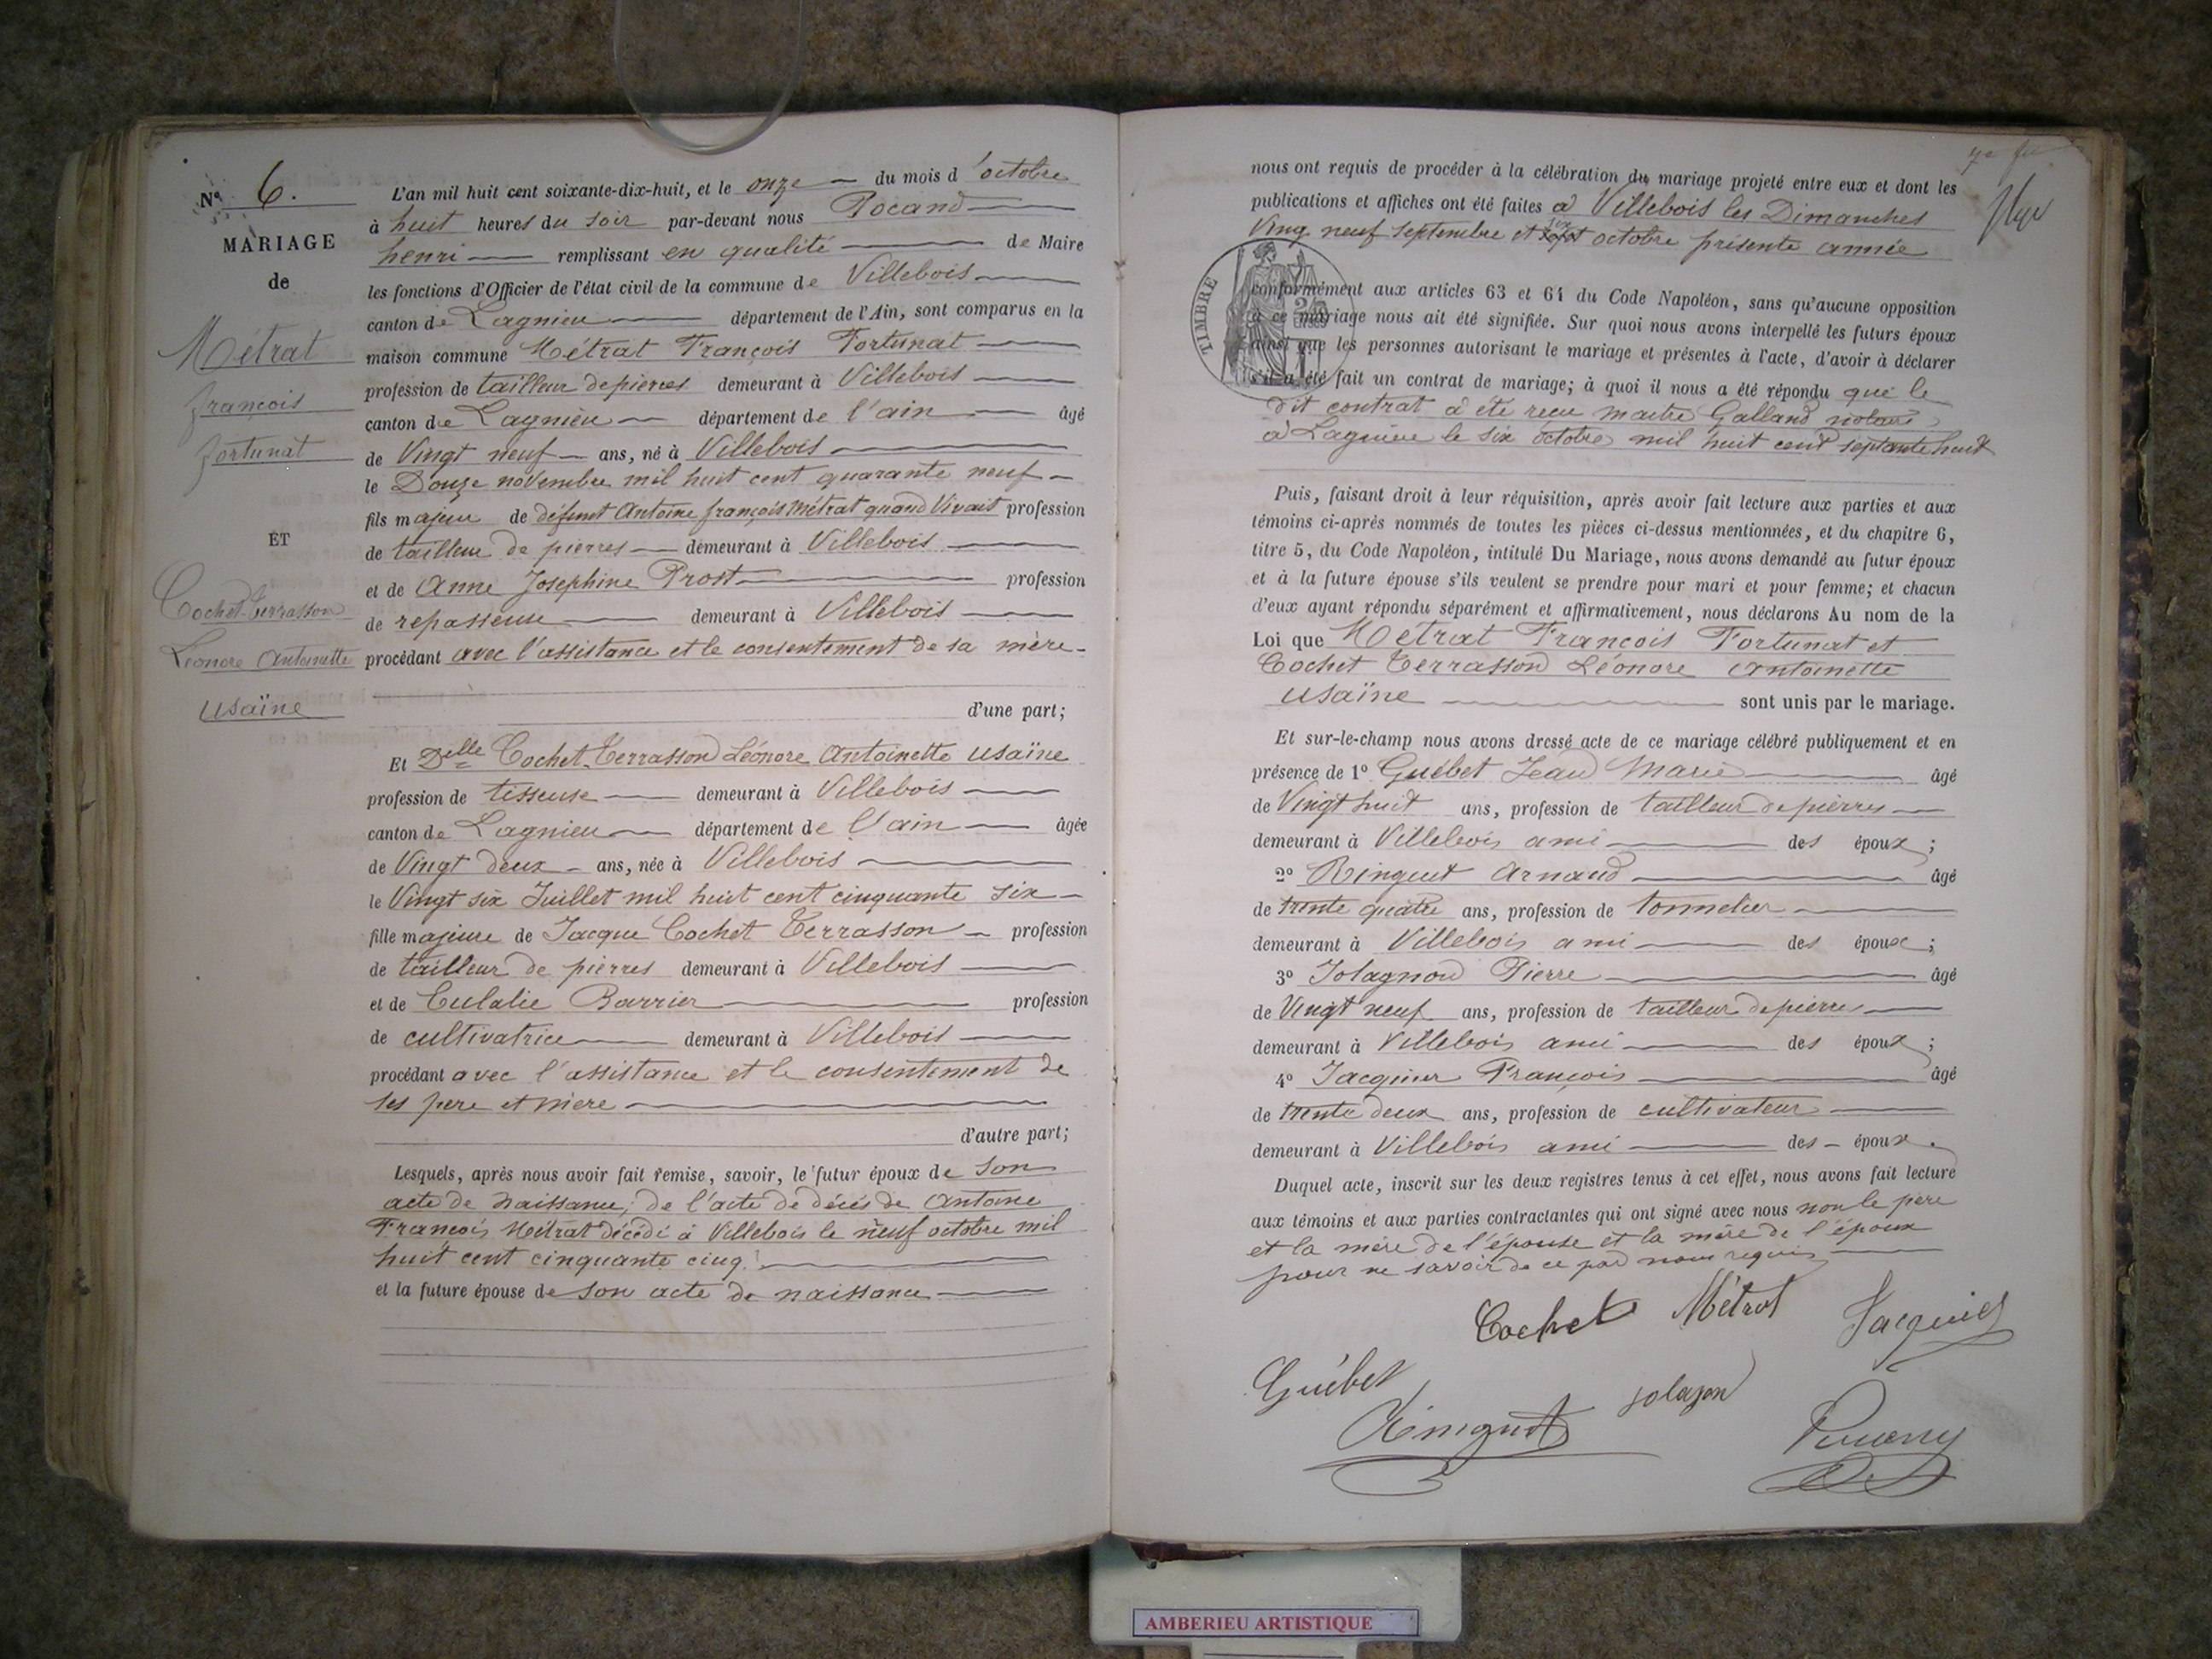 Nº 6.
MARIAGE
de
Métrat
françois
fortunat
ET
Cochet-Terrasson
Léonore Antoinette
Usaïne
L'an mil huit cent soixante-dix-huit, et le onze du mois d'octobre
à huit heures du soir par-devant nous Pocand
henri remplissant en qualité de Maire
les fonctions d'Officier de l'état civil de la commune de Villebois
canton de Lagnieu département de l'Ain, sont comparus en la
maison commune Métrat François Fortunat
profession de tailleur de pierres demeurant à Villebois
canton de Lagnieu département de l'ain âgé
de Vingt neuf ans, né à Villebois
le Douze novembre mil huit cent quarante neuf
fils majeur de défunt Antoine françois Métrat quand Vivait profession
de tailleur de pierres demeurant à Villebois
et de Anne Josephine Prost profession
de repasseuse demeurant à Villebois
procédant avec l'assistance et le consentement de sa mère
d'une part;
Et Delle Cochet-Terrasson Léonore Antoinette Usaïne
profession de tisseuse demeurant à Villebois
canton de Lagnieu département de l'ain âgée
de Vingt deux ans, née à Villebois
le Vingt six Juillet mil huit cent cinquante six
fille majeure de Jacque Cochet Terrasson profession
de tailleur de pierres demeurant à Villebois
et de Eulalie Barrier profession
de cultivatrice demeurant à Villebois
procédant avec l'assistance et le consentement de
ses pere et mère
d'autre part;
Lesquels, après nous avoir fait remise, savoir, le futur époux de son
acte de naissance, de l'acte de décès de Antoine
François Métrat décédé à Villebois le neuf octobre mil
huit cent cinquante cinq.
et la future épouse de son acte de naissance
nous ont requis de procéder à la célébration du mariage projeté entre eux et dont les
publications et affiches ont été faites à Villebois les Dimanches
Ving neuf septembre et six octobre présente année
TIMBRE
conformément aux articles 63 et 64 du Code Napoléon, sans qu'aucune opposition
à ce mariage nous ait été signifiée. Sur quoi nous avons interpellé les futurs époux
ainsi que les personnes autorisant le mariage et présentes à l'acte, d'avoir à déclarer
s'il a été fait un contrat de mariage; à quoi il nous a été répondu que le
dit contrat a été reçu maitre Galland notaire
à Lagnieu le six octobre mil huit cent septante huit
Puis, faisant droit à leur réquisition, après avoir fait lecture aux parties et aux
témoins ci-après nommés de toutes les pièces ci-dessus mentionnées, et du chapitre 6,
titre 5, du Code Napoléon, intitulé Du Mariage, nous avons demandé au futur époux
et à la future épouse s'ils veulent se prendre pour mari et pour femme; et chacun
d'eux ayant répondu séparément et affirmativement, nous déclarons Au nom de la
Loi que Métrat François Fortunat et
Cochet Terrasson Léonore Antoinette
Usaïne sont unis par le mariage.
Et sur-le-champ nous avons dressé acte de ce mariage célébré publiquement et en
présence de 1º Guébet Jean Marie âgé
de Vingt huit ans, profession de tailleur de pierres
demeurant à Villebois ami des époux;
2º Ringuet Arnaud âgé
de trente quatre ans, profession de tonnelier
demeurant à Villebois ami des époux;
3º Jolagnon Pierre âgé
de Vingt neuf ans, profession de tailleur de pierres
demeurant à Villebois ami des époux;
4º Jacquier François âgé
de trente deux ans, profession de cultivateur
demeurant à Villebois ami des époux.
Duquel acte, inscrit sur les deux registres tenus à cet effet, nous avons fait lecture
aux témoins et aux parties contractantes qui ont signé avec nous non le père
et la mère de l'épouse et la mère de l'époux
pour ne savoir de ce par nous requis
Cochet Métrat Jacquier
Guébet
Ringuet
jolagnon
AMBERIEU ARTISTIQUE